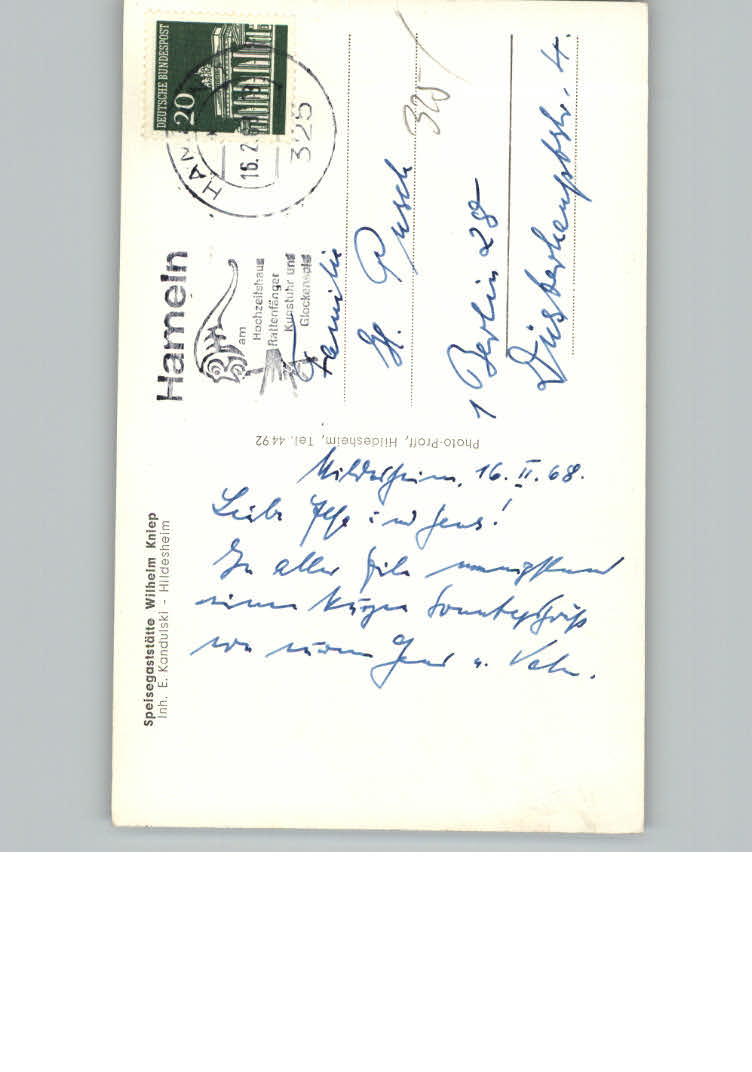 Speisegaststätte Wilhelm Kniep
Inh. E. Kandulski - Hildesheim
Hildesheim, 16. II. 68.
Liebe und Jens!
In aller Eile
einen kurzen Sonntagsgruß
von u.
Photo-Proff, Hildesheim, Tel. 4492
DEUTSCHE BUNDESPOST
20
HAMELN
16.2.68
325
Hameln
am
Hochzeitshaus
Rattenfänger
Kunstuhr und
Glockenspiel
325
Familie
H. Pusch
1 Berlin 28
Düsterhauptstr. 4.